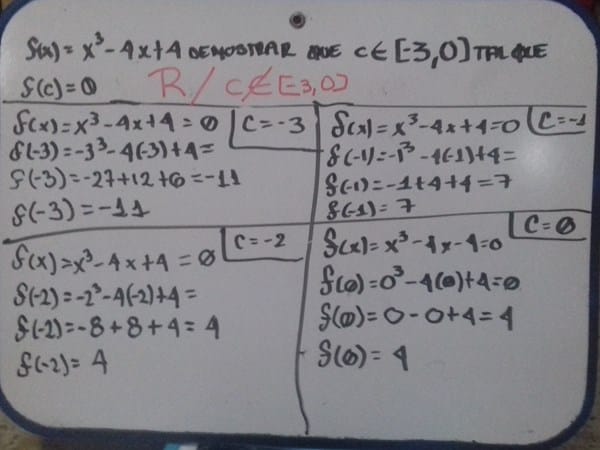 f(x) = x³ - 4x + 4 DEMOSTRAR QUE C ∈ [-3,0] TAL QUE
f(c) = 0 R/ C ∉ [-3,0]
f(x) = x³ - 4x + 4 = 0 C = -3
f(-3) = -3³ - 4(-3) + 4 =
f(-3) = -27 + 12 + 6 = -11
f(-3) = -11
f(x) = x³ - 4x + 4 = 0 C = -1
f(-1) = -1³ - 4(-1) + 4 =
f(-1) = -1 + 4 + 4 = 7
f(-1) = 7
f(x) = x³ - 4x + 4 = 0 C = -2
f(-2) = -2³ - 4(-2) + 4 =
f(-2) = -8 + 8 + 4 = 4
f(-2) = 4
C = 0
f(x) = x³ - 4x - 4 = 0
f(0) = 0³ - 4(0) + 4 = 0
f(0) = 0 - 0 + 4 = 4
f(0) = 4